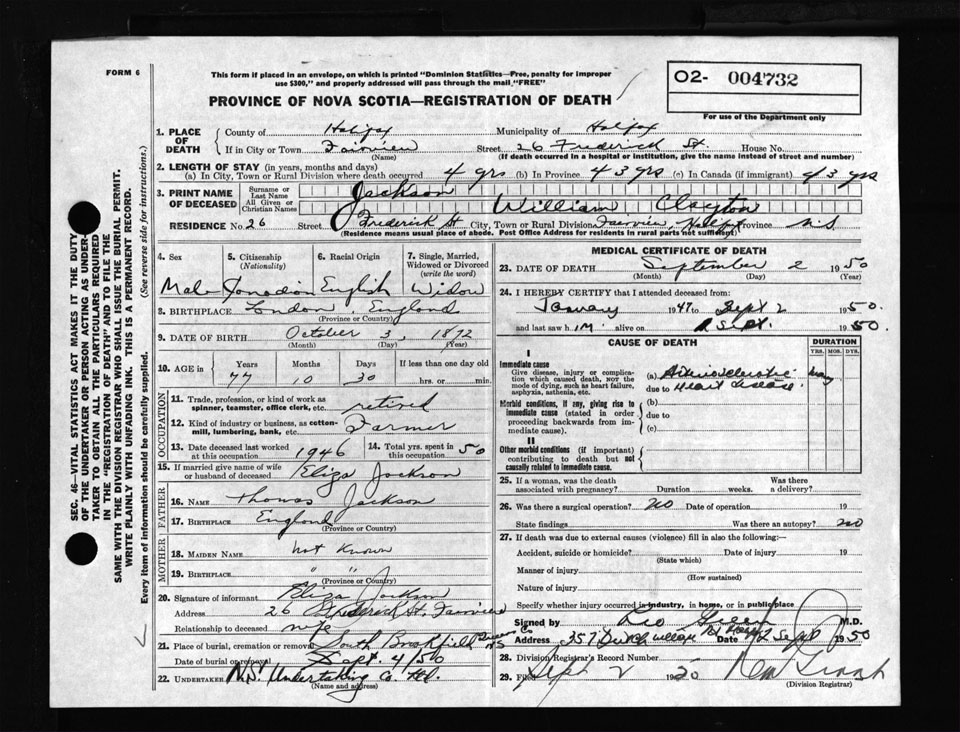 FORM 6
This form if placed in an envelope, on which is printed "Dominion Statistics—Free, penalty for improper
use $300," and properly addressed will pass through the mail "FREE"
02- 004732
For use of the Department only
PROVINCE OF NOVA SCOTIA—REGISTRATION OF DEATH
1. PLACE OF DEATH County of Halifax Municipality of Halifax
If in City or Town Fairview Street 26 Frederick St. House No.
(Name) (If death occurred in a hospital or institution, give the name instead of street and number)
2. LENGTH OF STAY (in years, months and days)
(a) In City, Town or Rural Division where death occurred 4 yrs (b) In Province 43 yrs (c) In Canada (if immigrant) 43 yrs
3. PRINT NAME OF DECEASED Surname or Last Name Jackson
All Given or Christian Names William Clayton
RESIDENCE No. 26 Street Frederick St City, Town or Rural Division Fairview, Halifax Province N.S
(Residence means usual place of abode. Post Office Address for residents in rural parts not sufficient)
4. Sex 5. Citizenship (Nationality) 6. Racial Origin 7. Single, Married, Widowed or Divorced (write the word)
Male Canadian English Widow
8. BIRTHPLACE London England
(Province or Country)
9. DATE OF BIRTH October 3, 1872
(Month) (Day) (Year)
10. AGE in Years Months Days If less than one day old
77 10 30 hrs. or min.
OCCUPATION
11. Trade, profession, or kind of work as
spinner, teamster, office clerk, etc. retired
12. Kind of industry or business, as cotton-
mill, lumbering, bank, etc. Farmer
13. Date deceased last worked at this occupation 1946 14. Total yrs. spent in this occupation 50
15. If married give name of wife
or husband of deceased Eliza Jackson
FATHER
16. NAME Thomas Jackson
17. BIRTHPLACE England
(Province or Country)
MOTHER
18. MAIDEN NAME Not Known
19. BIRTHPLACE " "
(Province or Country)
20. Signature of informant Eliza Jackson
Address 26 Frederick St. Fairview
Relationship to deceased wife
21. Place of burial, cremation or removal South Brookfield Queens Co NS
Date of burial or removal Sept 4/50
22. UNDERTAKER N.S. Undertaking Co. Ltd.
(Name and address)
MEDICAL CERTIFICATE OF DEATH
23. DATE OF DEATH September 2 1950
(Month) (Day) (Year)
24. I HEREBY CERTIFY that I attended deceased from:
January 1947 to Sept 2 1950.
and last saw h im alive on Sept. 1950.
CAUSE OF DEATH DURATION
YRS. MOS. DYS.
I
Immediate cause
Give disease, injury or complica-
tion which caused death, not the
mode of dying, such as heart failure,
asphyxia, asthenia, etc.
(a) Arteriosclerotic many
due to Heart disease.
Morbid conditions, if any, giving rise to
immediate cause (stated in order
proceeding backwards from im-
mediate cause).
(b)
due to
(c)
II
Other morbid conditions (if important)
contributing to death but not
causally related to immediate cause.
25. If a woman, was the death
associated with pregnancy? Duration weeks. Was there
a delivery?
26. Was there a surgical operation? no Date of operation 19
State findings Was there an autopsy? no
27. If death was due to external causes (violence) fill in also the following:—
Accident, suicide or homicide? Date of injury 19
(State which)
Manner of injury
(How sustained)
Nature of injury
Specify whether injury occurred in industry, in home, or in public place
Signed by Leo Green M.D.
Address 357 Dutch Village Rd Date 2 Sept 1950
28. Division Registrar's Record Number
29. Filed Sept 2 1950
(Division Registrar)
SEC. 46—VITAL STATISTICS ACT MAKES IT THE DUTY
OF THE UNDERTAKER OR PERSON ACTING AS UNDER-
TAKER TO OBTAIN ALL THE PARTICULARS REQUIRED
IN THE "REGISTRATION OF DEATH" AND TO FILE THE
SAME WITH THE DIVISION REGISTRAR WHO SHALL ISSUE THE BURIAL PERMIT.
WRITE PLAINLY WITH UNFADING INK. THIS IS A PERMANENT RECORD.
Every item of information should be carefully supplied. (See reverse side for instructions.)